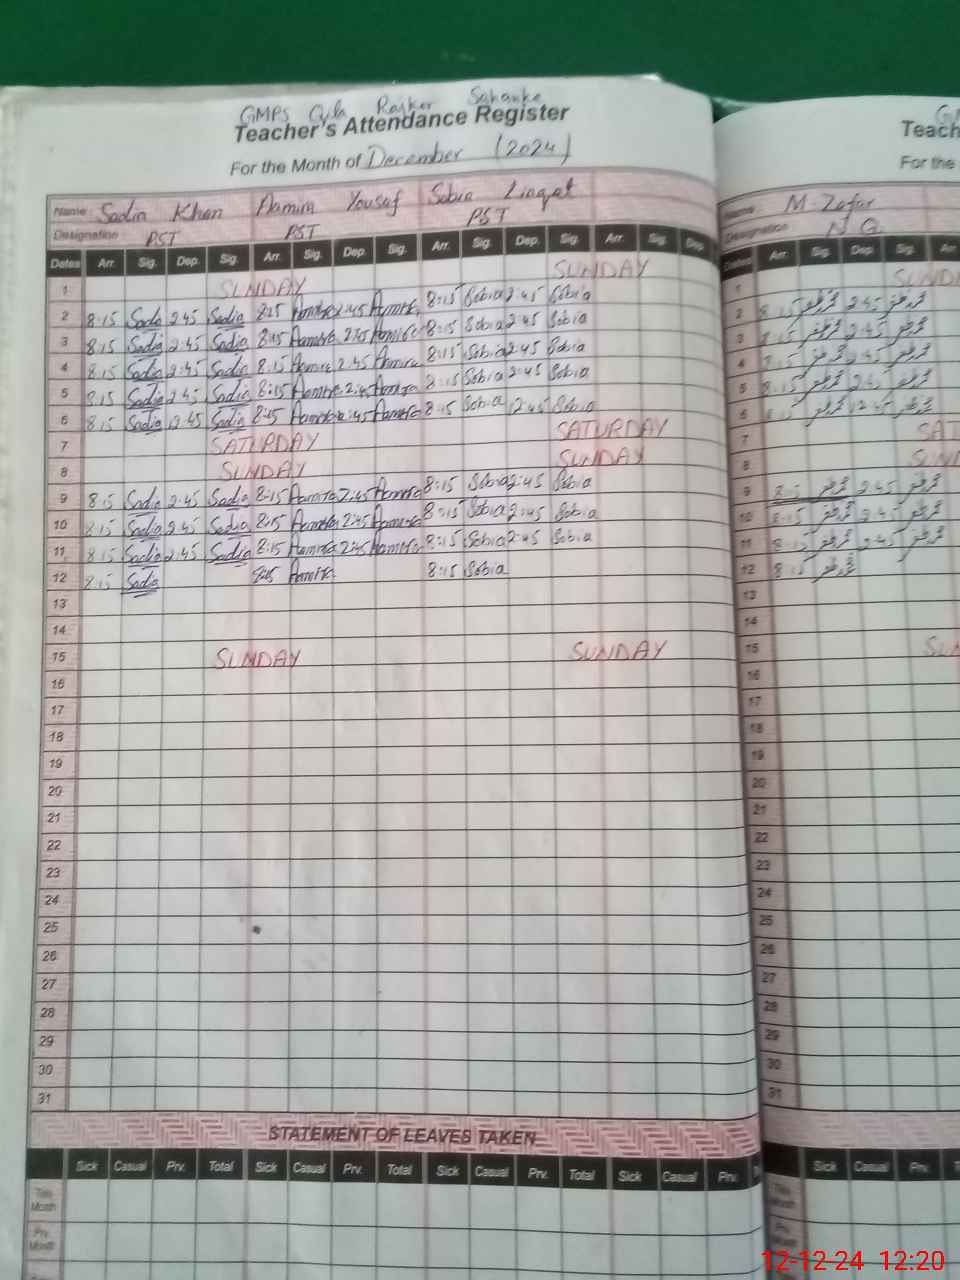 GMPS Qila Rajker Sahanke
Teacher's Attendance Register
For the Month of December (2024)
Name: Sadia Khan Aamira Yousaf Sobia Liaqat
Designation PST PST PST
Dates Arr. Sig. Dep. Sig. Arr. Sig. Dep. Sig. Arr. Sig. Dep. Sig. Arr. Sig. Dep.
1 SUNDAY SUNDAY
2 8:15 Sadia 2:45 Sadia 8:15 Aamira 2:45 Aamira 8:15 Sobia 2:45 Sobia
3 8:15 Sadia 2:45 Sadia 8:15 Aamira 2:45 Aamira 8:15 Sobia 2:45 Sobia
4 8:15 Sadia 2:45 Sadia 8:15 Aamira 2:45 Aamira 8:15 Sobia 2:45 Sobia
5 8:15 Sadia 2:45 Sadia 8:15 Aamira 2:45 Aamira 8:15 Sobia 2:45 Sobia
6 8:15 Sadia 12:45 Sadia 8:15 Aamira 12:45 Aamira 8:15 Sobia 12:45 Sobia
7 SATURDAY SATURDAY
8 SUNDAY SUNDAY
9 8:15 Sadia 2:45 Sadia 8:15 Aamira 2:45 Aamira 8:15 Sobia 2:45 Sobia
10 8:15 Sadia 2:45 Sadia 8:15 Aamira 2:45 Aamira 8:15 Sobia 2:45 Sobia
11 8:15 Sadia 2:45 Sadia 8:15 Aamira 2:45 Aamira 8:15 Sobia 2:45 Sobia
12 8:15 Sadia 8:15 Aamira 8:15 Sobia
13
14
15 SUNDAY SUNDAY
16
17
18
19
20
21
22
23
24
25
26
27
28
29
30
31
STATEMENT OF LEAVES TAKEN
Sick Casual Prv. Total Sick Casual Prv. Total Sick Casual Prv. Total Sick Casual Prv.
This Month
Prv. Month
Teach
For the
Name: M. Zafar
Designation N Q
Dates Arr. Sig. Dep. Sig. Arr.
1 SUND
2 8:15 محمد ظفر 2:45 محمد ظفر
3 8:15 محمد ظفر 2:45 محمد ظفر
4 8:15 محمد ظفر 2:45 محمد ظفر
5 8:15 محمد ظفر 2:45 محمد ظفر
6 8:15 محمد ظفر 12:45 محمد ظفر
7 SAT
8 SUND
9 8:15 محمد ظفر 2:45 محمد ظفر
10 8:15 محمد ظفر 2:45 محمد ظفر
11 8:15 محمد ظفر 2:45 محمد ظفر
12 8:15 محمد ظفر
13
14
15 SUN
16
17
18
19
20
21
22
23
24
25
26
27
28
29
30
31
Sick Casual Prv.
This Month
Prv. Month
12-12-24 12:20